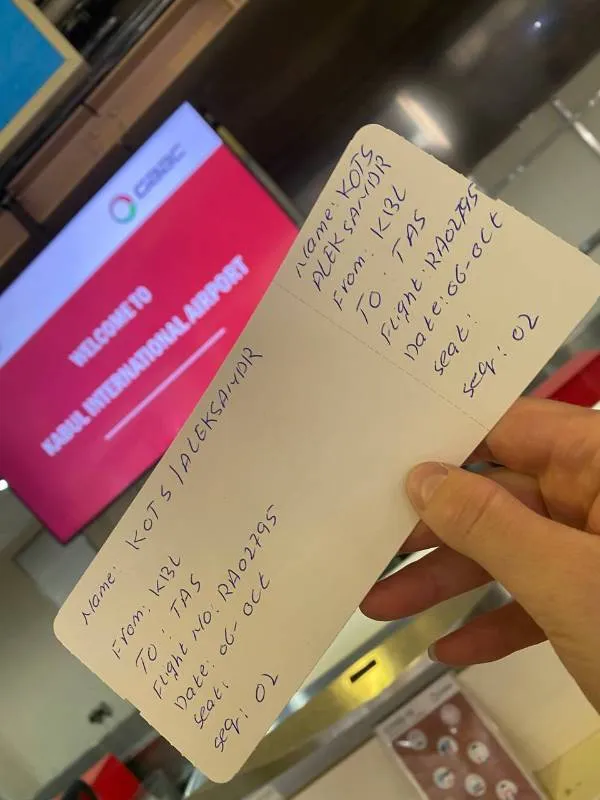 caac
WELCOME TO
KABUL INTERNATIONAL AIRPORT
Name: KOTS
ALEKSANDR
From: KBL
TO: TAS
Flight: RA02795
Date: 06-Oct
seat:
seq: 02
Name: KOTS/ALEKSANDR
From: KBL
TO: TAS
Flight NO: RA02795
Date: 06-Oct
seat:
seq: 02